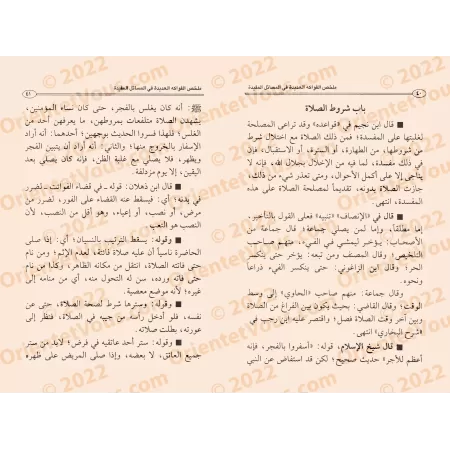 ٤٠
ملخص الفواكه العديدة في المسائل المفيدة
باب شروط الصلاة
■ قال ابن نجيم في «قواعده» وقد تراعى المصلحة
لغلبتها على المفسدة؛ فمن ذلك الصلاة مع اختلال شرط
من شروطها، من الطهارة، أو الستر، أو الاستقبال، فإن
في ذلك مفسدة، لما فيه من الإخلال بجلال الله، فإنه لا
يناجى إلا على أكمل الأحوال، ومتى تعذر شيء من ذلك،
جازت الصلاة بدونه، تقديمًا لمصلحة الصلاة على هذه
المفسدة، انتهى.
■ قال في «الإنصاف» «تنبيه» فعلى القول بالتأخير،
إما مطلقاً، وإما لمن يصلي جماعة؛ قال جماعة من
الأصحاب: يؤخر ليمشي في الفيء، منهم صاحب
«التلخيص»؛ وقال المصنف ومن تبعه: يؤخر حتى ينكسر
الحر؛ وقال ابن الزاغوني: حتى ينكسر الفيء ذراعاً
ونحوه.
وقال جماعة: منهم صاحب «الحاوي» إلى وسط
الوقت؛ وقال القاضي: بحيث يكون بين الفراغ من الصلاة
وبين آخر وقت الصلاة فضل؛ واقتصر عليه ابن رجب في
«شرح البخاري» انتهى.
■ قال شيخ الإسلام، قوله: «أسفروا بالفجر، فإنه
أعظم للأجر» حديث صحيح؛ لكن قد استفاض عن النبي
ملخص الفواكه العديدة في المسائل المفيدة
٤١
ﷺ: أنه كان يغلس بالفجر، حتى كان نساء المؤمنين،
يشهدن الصلاة متلفعات بمروطهن، ما يعرفهن أحد من
الغلس؛ فلهذا فسروا الحديث بوجهين: أحدهما: أنه أراد
الإسفار بالخروج منها؛ والثاني: أنه أراد أن يتبين الفجر
ويظهر، فلا يصلي مع غلبة الظن، فإنه كان يصلي بعد
اليقين، إلا يوم مزدلفة.
■ قال ابن ذهلان: قوله ـ في قضاء الفوائت ـ لضرر
في بدنه؛ أي: فيسقط عنه القضاء على الفور، لضرر من
مرض، أو نصب، أو إعياء، وهو أقل من النصب، لأن
النصب هو التعب
■ وقوله: يسقط الترتيب بالنسيان؛ أي: إذا صلى
الحاضرة ناسياً أن عليه صلاة فائتة، لعدم الإثم؛ ومن نام
حتى فاتته الصلاة، انتقل من مكانه الظاهر، وكذا من نام
غيره؛ لأنه موضع معصية.
■ وقوله: وسترها شرط لصحة الصلاة، حتى عن
نفسه، فلو أدخل رأسه من جيبه في الصلاة، فنظر إلى
عورته، بطلت صلاته.
■ وقوله: ستر أحد عاتقيه في فرض؛ لابد من ستر
جميع العاتق، لا بعضه، وإذا صلى المريض على ظهره
© 2022
OrientetVous.com